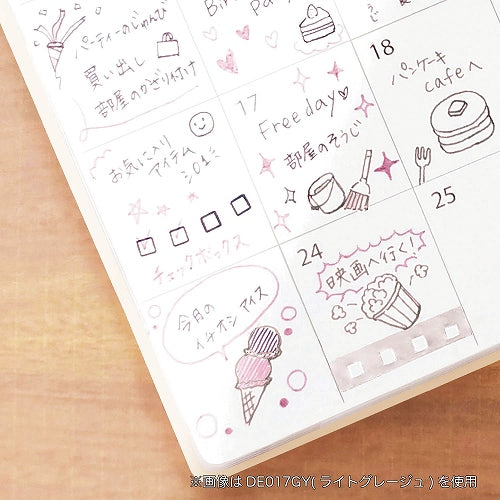 パーティーのじゅんび
買い出し
部屋のかざり付け
17
Freeday♡
部屋のそうじ
18
パンケーキ
cafeへ
お気に入り
アイテム
チェックボックス
24
映画へ行く!
25
今月の
イチオシ アイス
※画像は DE017GY( ライトグレージュ ) を使用